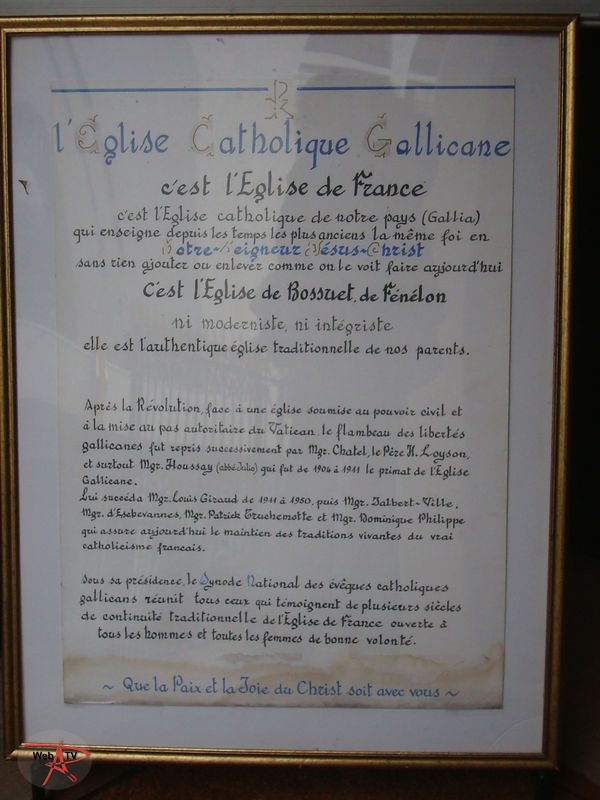 l'Eglise Catholique Gallicane
c'est l'Eglise de France
c'est l'Eglise catholique de notre pays (Gallia)
qui enseigne depuis les temps les plus anciens la même foi en
Notre-Seigneur Jésus-Christ
sans rien ajouter ou enlever comme on le voit faire aujourd'hui
C'est l'Eglise de Bossuet, de Fénélon
ni moderniste, ni intégriste
elle est l'authentique église traditionnelle de nos parents.
Après la Révolution, face à une église soumise au pouvoir civil et
à la mise au pas autoritaire du Vatican, le flambeau des libertés
gallicanes fut repris successivement par Mgr. Chatel, le Père H. Loyson,
et surtout Mgr. Houssay (abbé Julio) qui fut de 1904 à 1911 le primat de l'Eglise
Gallicane.
Lui succéda Mgr. Louis Giraud de 1911 à 1950, puis Mgr. Jalbert-Ville,
Mgr. d'Eschevannes, Mgr. Patrick Truchemotte et Mgr. Dominique Philippe
qui assure aujourd'hui le maintien des traditions vivantes du vrai
catholicisme francais.
Sous sa présidence, le Synode National des évêques catholiques
gallicans réunit tous ceux qui témoignent de plusieurs siècles
de continuité traditionnelle de l'Eglise de France ouverte à
tous les hommes et toutes les femmes de bonne volonté.
~ Que la Paix et la Joie du Christ soit avec vous ~
Web TV